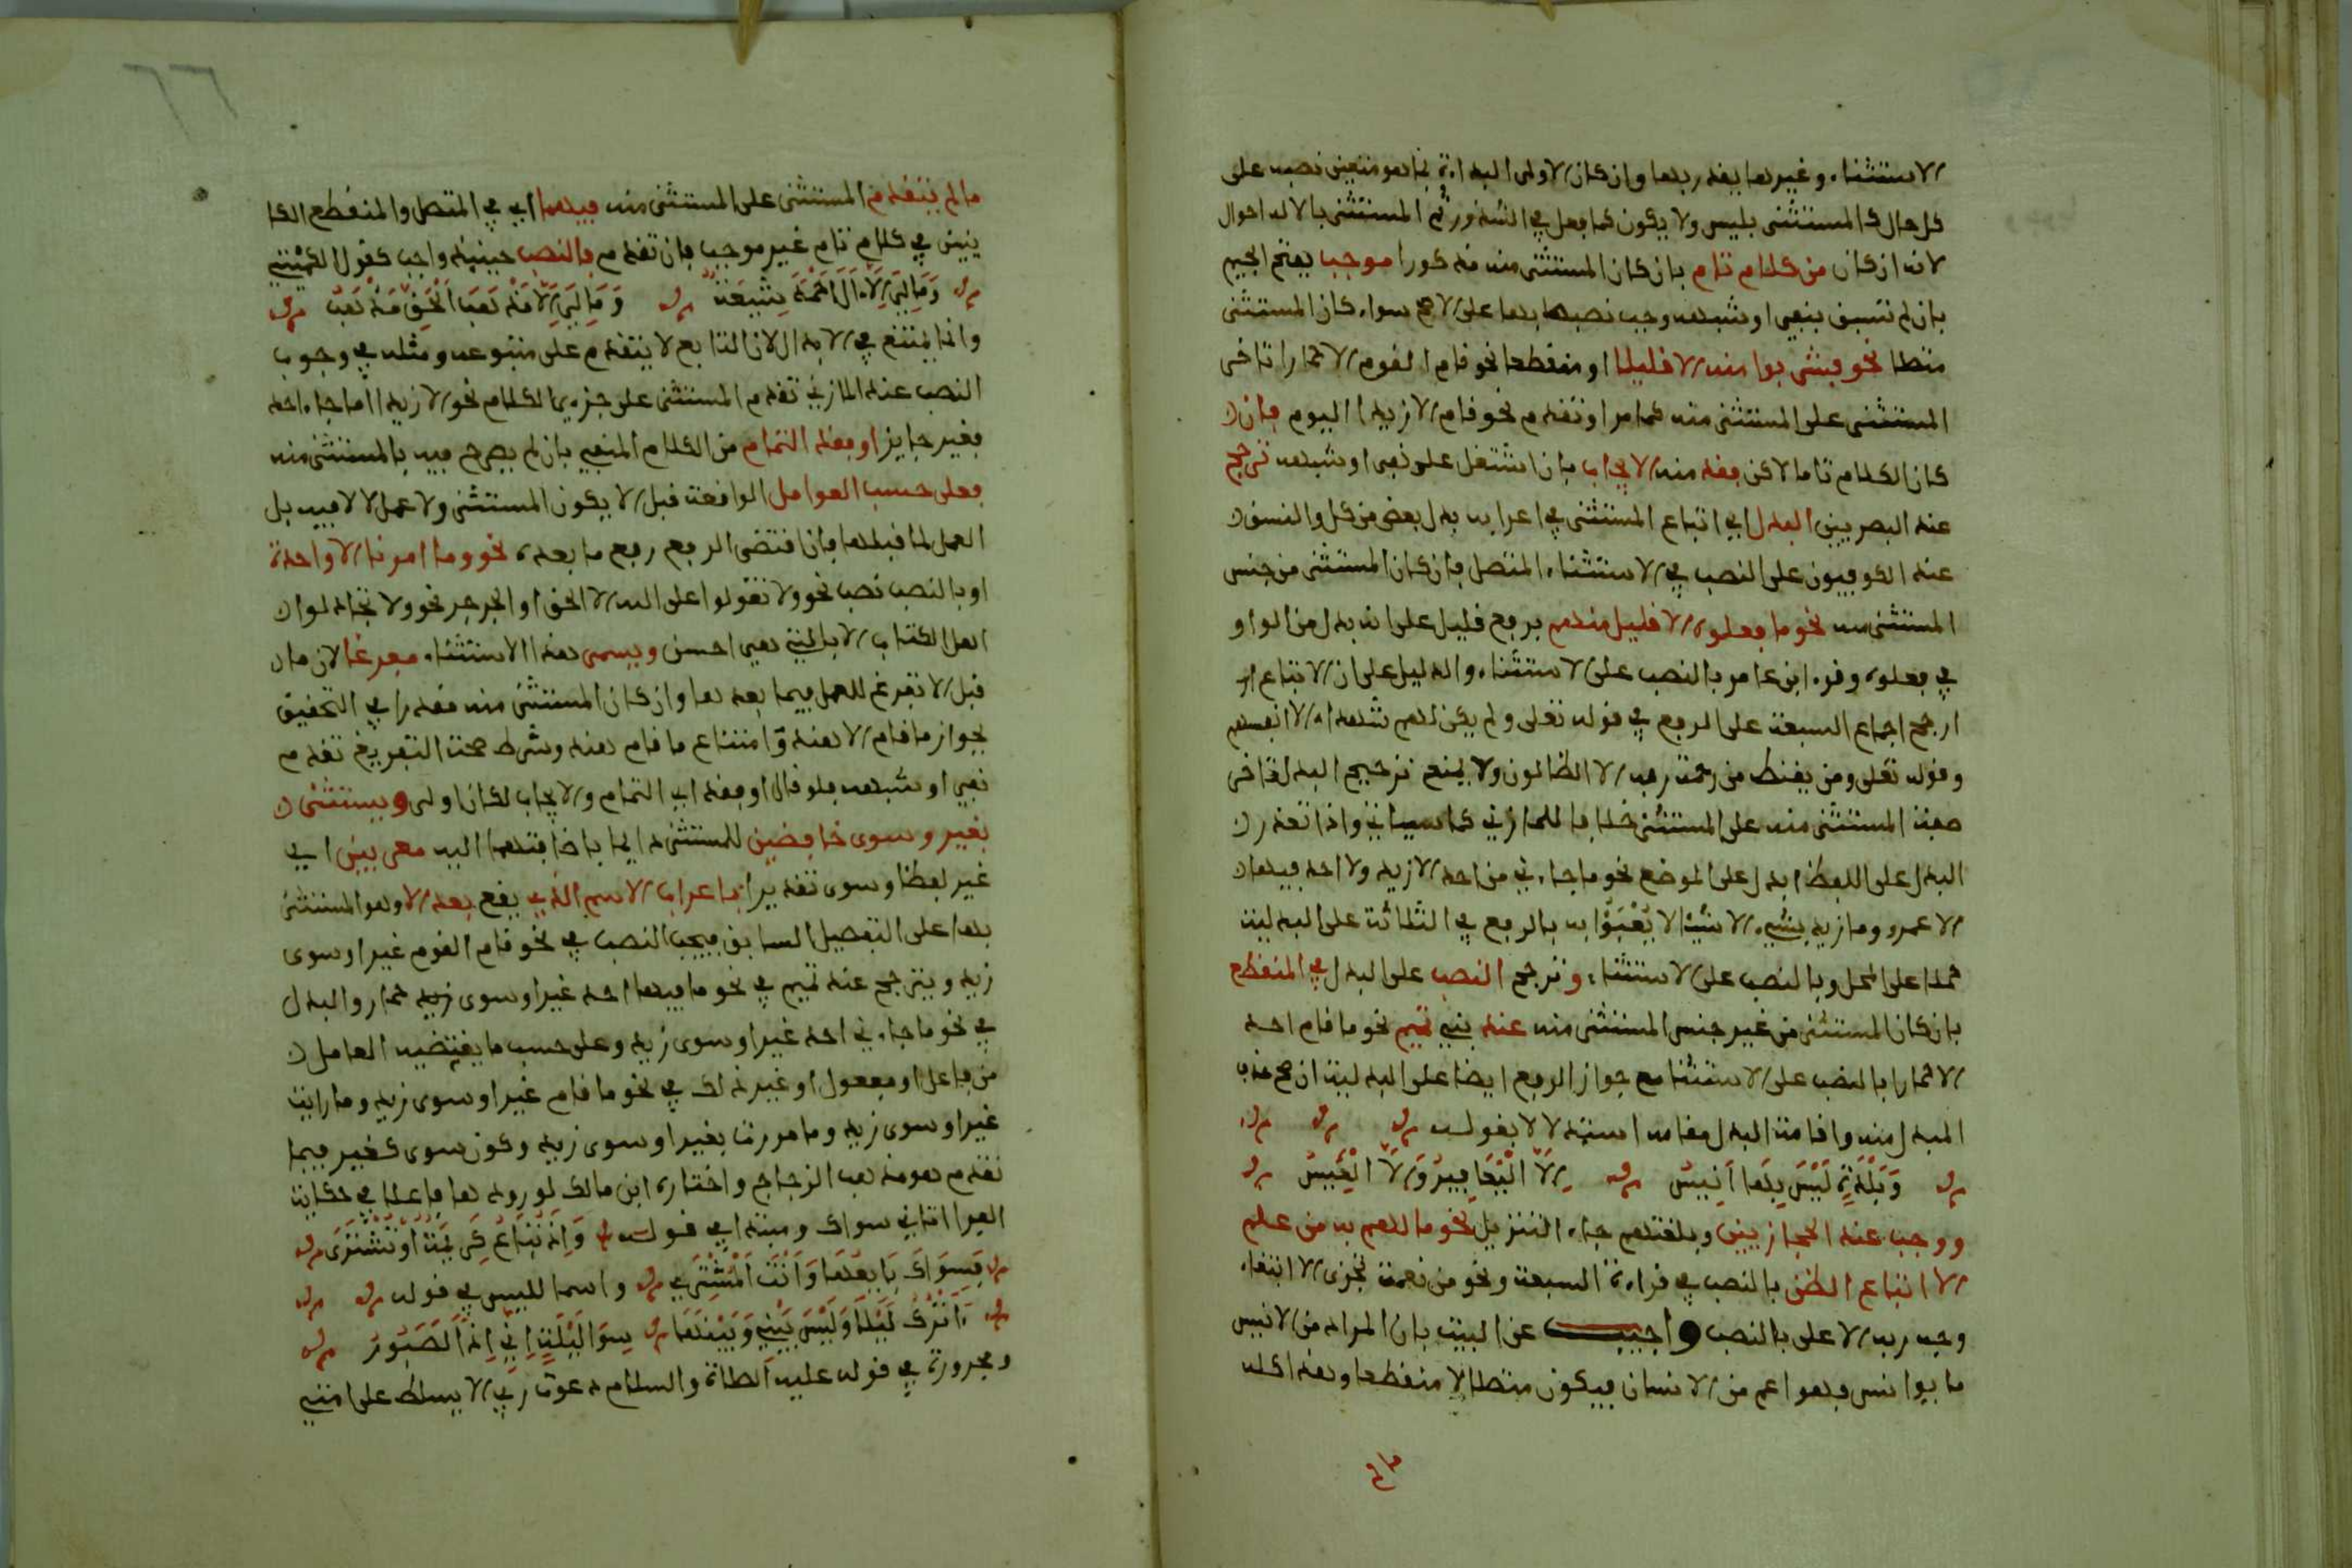 الاستثناء وغيرها يقدر بها وان كان الاولى البداءة بما هو متعين نصبه على
كل حال كالمستثنى بليس ولا يكون كما فعل في الشذور ثم المستثنى بالا له احوال
لانه ان كان من كلام تام بان كان المستثنى منه مذكورا موجب بفتح الجيم
بان لم تسبق بنفي او شبهه وجب نصبه بها على الاصح سواء كان المستثنى
متصلا نحو فشربوا منه الا قليلا او منقطعا نحو قام القوم الا حمارا تاخر
المستثنى على المستثنى منه كما مر او تقدم نحو قام الا زيدا اليوم فان
كان الكلام تاما لاكن فقد منه الايجاب بان اشتمل على نفي او شبهه ترجح
عند البصريين البدل اي اتباع المستثنى في اعرابه بدل بعض من كل والنسق
عند الكوفيون على النصب في الاستثناء المتصل بان كان المستثنى من جنس
المستثنى منه نحو ما فعلوه الا قليل منهم برفع قليل على انه بدل من الواو
في فعلوه وقرء ابن عامر بالنصب على الاستثناء والدليل على ان الاتباع
ارجح اجماع السبعة على الرفع في قوله تعلى ولم يكن لهم شهداء الا انفسهم
وقوله تعلى ومن يقنط من رحمة ربه الا الظالمون ولا يمنع ترجيح البدل تاخر
صفة المستثنى منه على المستثنى خلافا للمازني كما سياتي واذا تعذر
البدل على اللفظ ابدل على الموضع نحو ما جاءني من احد الا زيد ولا احد فيها
الا عمرو وما زيد بشيء الا شيء لا يعبؤا به بالرفع في الثلاثة على البدلية
حملا على المحل وبالنصب على الاستثناء وترجح النصب على البدل في المنقطع
بان كان المستثنى من غير جنس المستثنى منه عند بني تميم نحو ما قام احد
الا حمارا بالنصب على الاستثنا مع جواز الرفع ايضا على البدلية ان صح حذف
المبدل منه واقامة البدل مقامه استدلالا بقوله
وبلدة ليس بها انيس الا اليعافير والا العيس
ووجب عند الحجازيين وبلغتهم جاء التنزيل نحو ما لهم به من علم
الا اتباع الظن بالنصب في قراءة السبعة ونحو من نعمة تجزى الا ابتغاء
وجه ربه الاعلى بالنصب واجيب عن البيت بان المراد من الانيس
ما يوانس وهو اعم من الانسان فيكون متصلا لا منقطعا وهذا كله
مالم
٦٦
مالم يتقدم المستثنى على المستثنى منه فيهما اي في المتصل والمنقطع الكا
ينين في كلام تام غير موجب فان تقدم فالنصب حينيذ واجب كقول الكميت
وما لي الا ال احمد شيعة وما لي الا مذهب الحق مذهب
وانما يمتنع في الابدال لان التابع لا يتقدم على متبوعه ومثله في وجوب
النصب عند المازني تقدم المستثنى على جزءي الكلام نحو الا زيدا ما جاء احد
فغير جايز او فقد التمام من الكلام المنفي بان لم يصرح فيه بالمستثنى منه
فعلى حسب العوامل الواقعة قبل الا يكون المستثنى ولا عمل لالا فيه بل
العمل لما قبلها فان اقتضى الرفع رفع ما بعده نحو وما امرنا الا واحدة
او بالنصب نصب نحو ولا تقولوا على الله الا الحق او الجر جر نحو ولا تجادلوا
اهل الكتاب الا بالتي هي احسن ويسمى هذا الاستثناء مفرغا لان ما
قبل الا تفرغ للعمل فيما بعدها وان كان المستثنى منه مقدرا في التحقيق
بجواز ما قام الا هند وامتناع ما قام هند وشرط صحة التفريغ تقدم
نفي او شبهه فلو قال او فقد اي التمام والايجاب لكان اولى ويستثنى
بغير وسوى خافضين للمستثنى دايما باضافتهما اليه معربين اي
غير لفظا وسوى تقديرا باعراب الاسم الذي يقع بعد الا وهو المستثنى
بها على التفصيل السابق فيجب النصب في نحو قام القوم غير او سوى
زيد ويترجح عند تميم في نحو ما فيها احد غير او سوى زيد حمار والبدل
في نحو ما جاءني احد غير او سوى زيد وعلى حسب ما يقتضيه العامل
من فاعل او مفعول او غير ذلك في نحو ما قام غير او سوى زيد وما رايت
غير او سوى زيد وما مررت بغير او سوى زيد وكون سوى كغير فيما
تقدم هو مذهب الزجاج واختاره ابن مالك لورودها فاعلا في حكاية
الفرا اتاني سواك ومبتدا في قوله واذ تباع كريمة او تشترى
فسواك بايعها وانت المشتري واسما لليس في قوله
ااترك ليلى وليس بيني وبينها سوى ليلة اني اذا لصبور
ومجرورة في قوله عليه الصلاة والسلام دعوت ربي الا يسلط على امتي